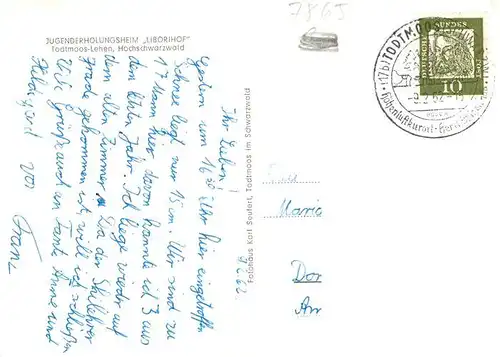 7865
JUGENDERHOLUNGSHEIM „LIBORIHOF"
Todtmoos-Lehen, Hochschwarzwald
(17b) TODTMOOS
-9.2.62-
Höhenluftkurort
DEUTSCHE BUNDESPOST
10
Ihr Lieben!
Gestern um 16 Uhr hier eingetroffen
Schnee liegt nur 15 cm. Wir sind zu
17 Mann hier davon kannte ich 3 aus
dem letzten Jahr. Ich liege wieder auf
dem alten Zimmer. Da der Skilehrer
grade gekommen ist, will ich schließen
Viele Grüße auch an Tante Anne und
Hildegard von
Franz
9.2.62
Fotohaus Karl Seufert, Todtmoos im Schwarzwald
Maria
Dor
Am